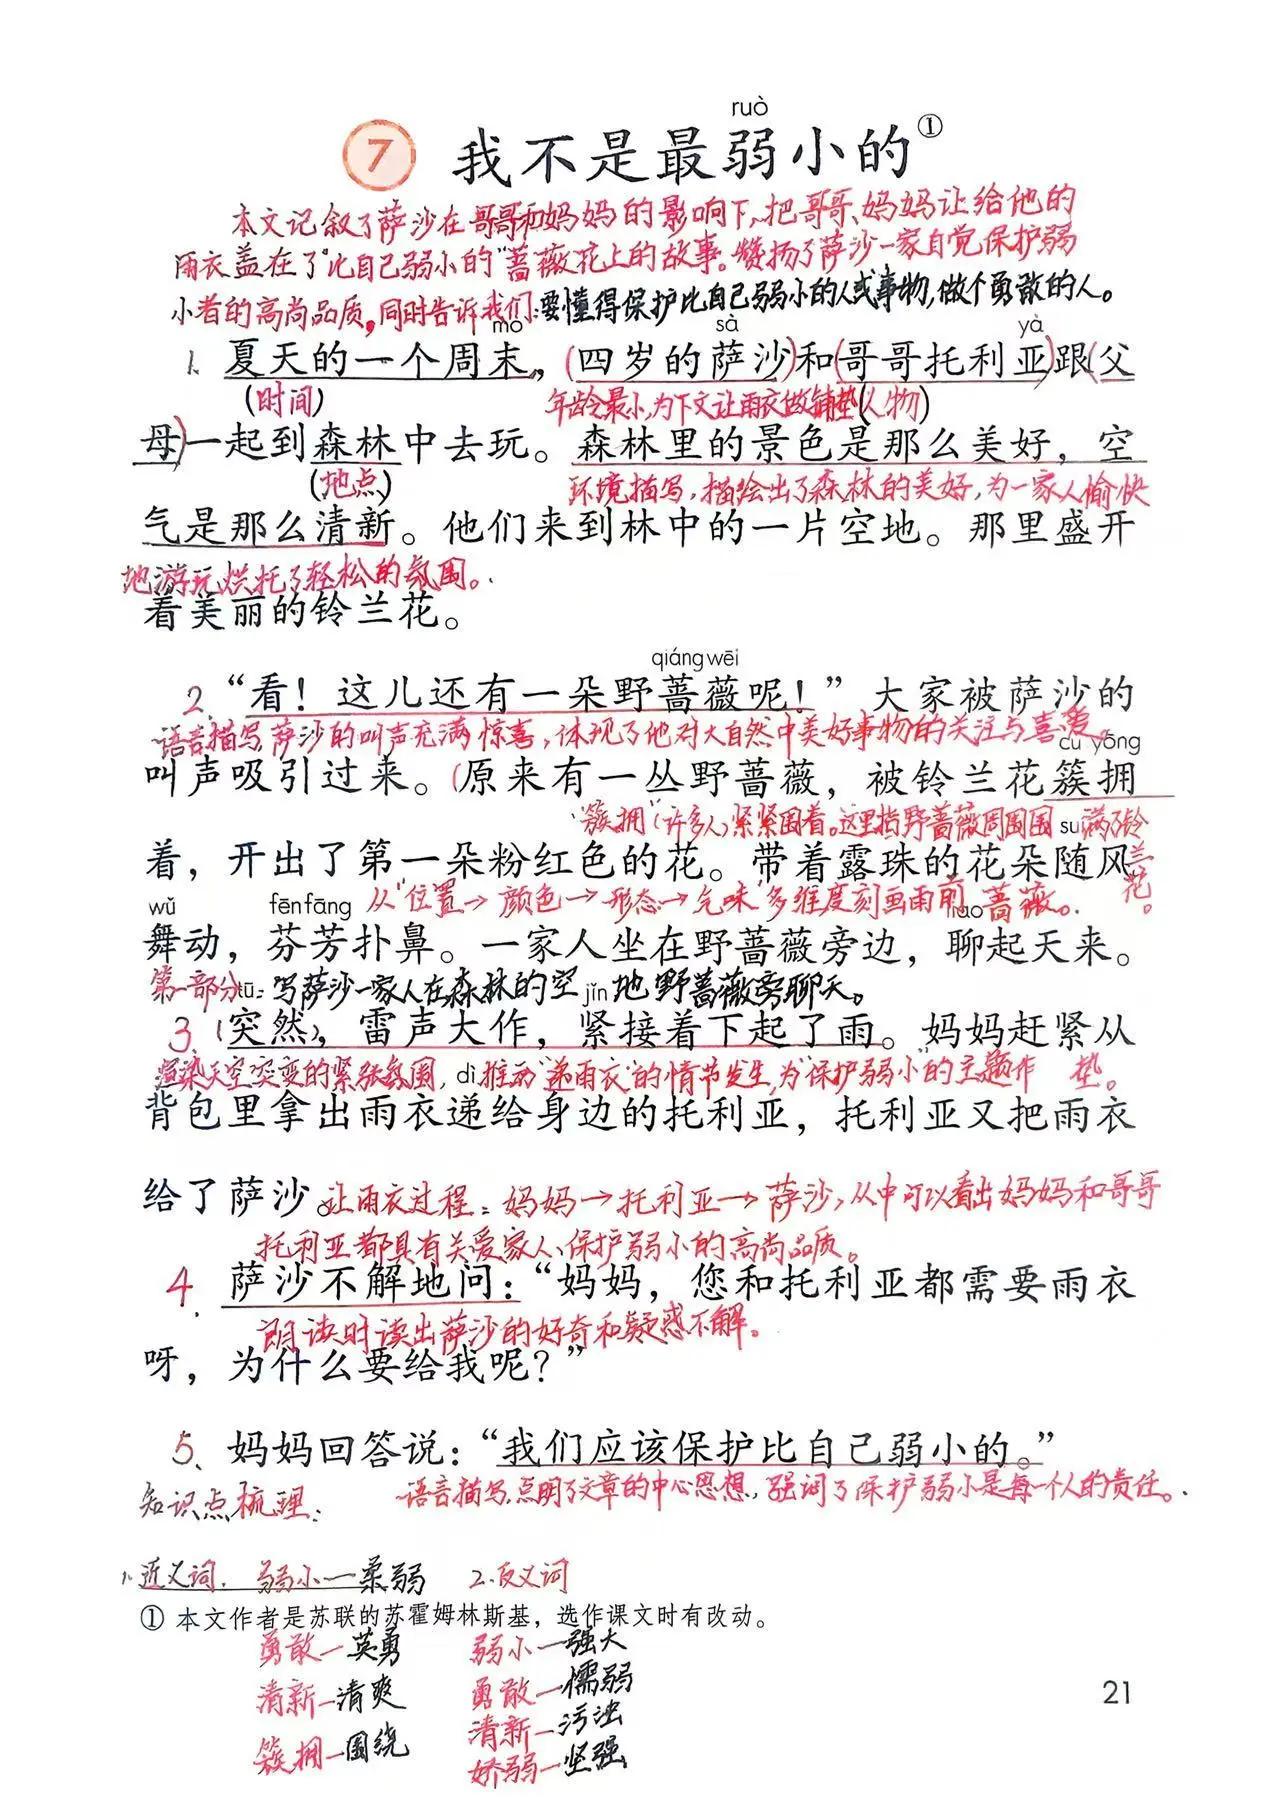 ruò
7 我不是最弱小的①
本文记叙了萨沙在哥哥和妈妈的影响下,把哥哥、妈妈让给他的
雨衣盖在了"比自己弱小的"蔷薇花上的故事。赞扬了萨沙一家自觉保护弱
小者的高尚品质。同时告诉我们:要懂得保护比自己弱小的人或事物,做个勇敢的人。
mò sà yà
1. 夏天的一个周末,(四岁的萨沙)和(哥哥托利亚)跟(父
(时间) 年龄最小,为下文让雨衣做铺垫(人物)
母)一起到森林中去玩。森林里的景色是那么美好,空
(地点) 环境描写,描绘出了森林的美好,为一家人愉快
气是那么清新。他们来到林中的一片空地。那里盛开
地游玩烘托了轻松的氛围。
着美丽的铃兰花。
qiáng wēi
2. “看!这儿还有一朵野蔷薇呢!”大家被萨沙的
语言描写,萨沙的叫声充满惊喜,体现了他对大自然中美好事物的关注与喜爱。
cù yōng
叫声吸引过来。(原来有一丛野蔷薇,被铃兰花簇拥
"簇拥"(许多人)紧紧围着。这里指野蔷薇周围围满了铃兰花。
suí
着,开出了第一朵粉红色的花。带着露珠的花朵随风
从"位置→颜色→形态→气味"多维度刻画雨前蔷薇。
wǔ fēn fāng liáo
舞动,芬芳扑鼻。一家人坐在野蔷薇旁边,聊起天来。
第一部分:写萨沙一家人在森林的空地野蔷薇旁聊天。
tū jǐn
3. (突然),雷声大作,紧接着下起了雨。妈妈赶紧从
渲染天空突变的紧张氛围,推动"递雨衣"的情节发生,为"保护弱小"的主题作 垫。
dì
背包里拿出雨衣递给身边的托利亚,托利亚又把雨衣
给了萨沙。让雨衣过程:妈妈→托利亚→萨沙,从中可以看出妈妈和哥哥
托利亚都具有关爱家人、保护弱小的高尚品质。
4. 萨沙不解地问:“妈妈,您和托利亚都需要雨衣
朗读时读出萨沙的好奇和疑惑不解。
呀,为什么要给我呢?”
5. 妈妈回答说:“我们应该保护比自己弱小的。”
知识点梳理: 语言描写,点明了文章的中心思想,强调了保护弱小是每一个人的责任。
1. 近义词. 弱小—柔弱 2. 反义词
① 本文作者是苏联的苏霍姆林斯基,选作课文时有改动。
勇敢—英勇 弱小—强大
清新—清爽 勇敢—懦弱
清新—污浊
簇拥—围绕 娇弱—坚强
21